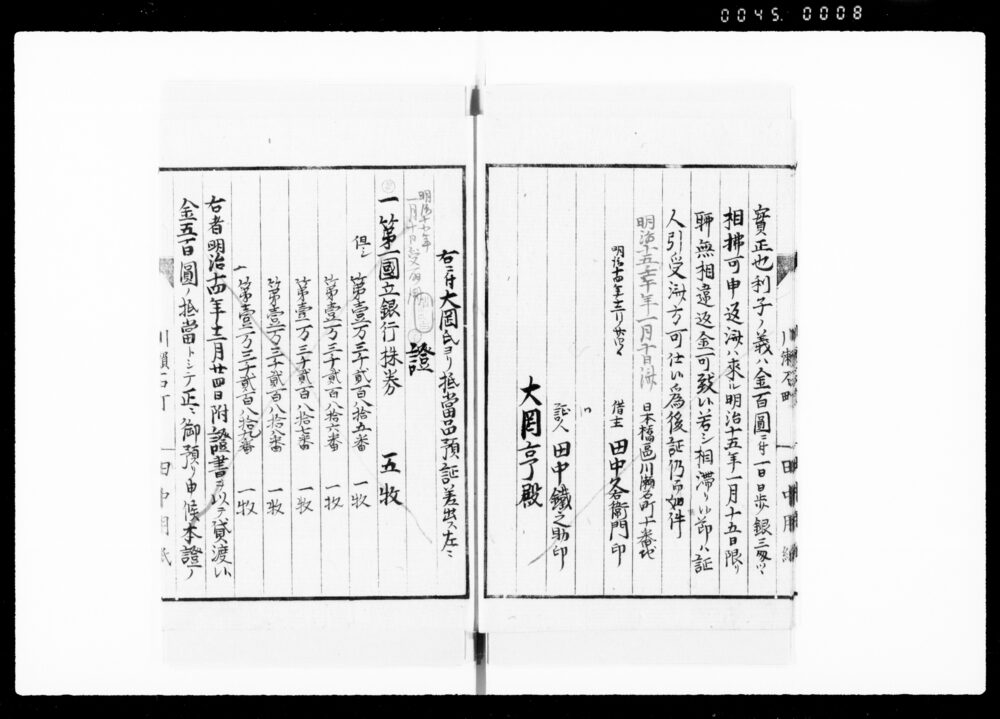 0045. 0008
實正也利子ノ義ハ金百圓ニ付一日日歩銀三匁ツヽ
相拂可申返済ハ來ル明治十五年一月十五日限リ
聊無相違返金可致候若シ相滞リ候節ハ証
人引受済方可仕候為後証仍而如件
明治十五年一月十日済
明治十四年十二月廿四日
日本橋區川瀬石町十番地
借主 田中久右衛門印
証人 田中鐵之助印
大岡亨殿
右ニ付大岡氏ヨリ抵當品預証差出ス左ニ
證
明治十五年
一月十日
一第一國立銀行株券 五牧
但シ 第壹万三千貳百八拾五番 一牧
第壹万三千貳百八拾六番 一牧
第壹万三千貳百八拾七番 一牧
第壹万三千貳百八拾八番 一牧
第壹万三千貳百八拾九番 一牧
右者明治十四年十二月廿四日附證書ヲ以テ貸渡候
金五百圓ノ抵當トシテ正ニ御預リ申候本證ノ
川瀬石町
田中用紙